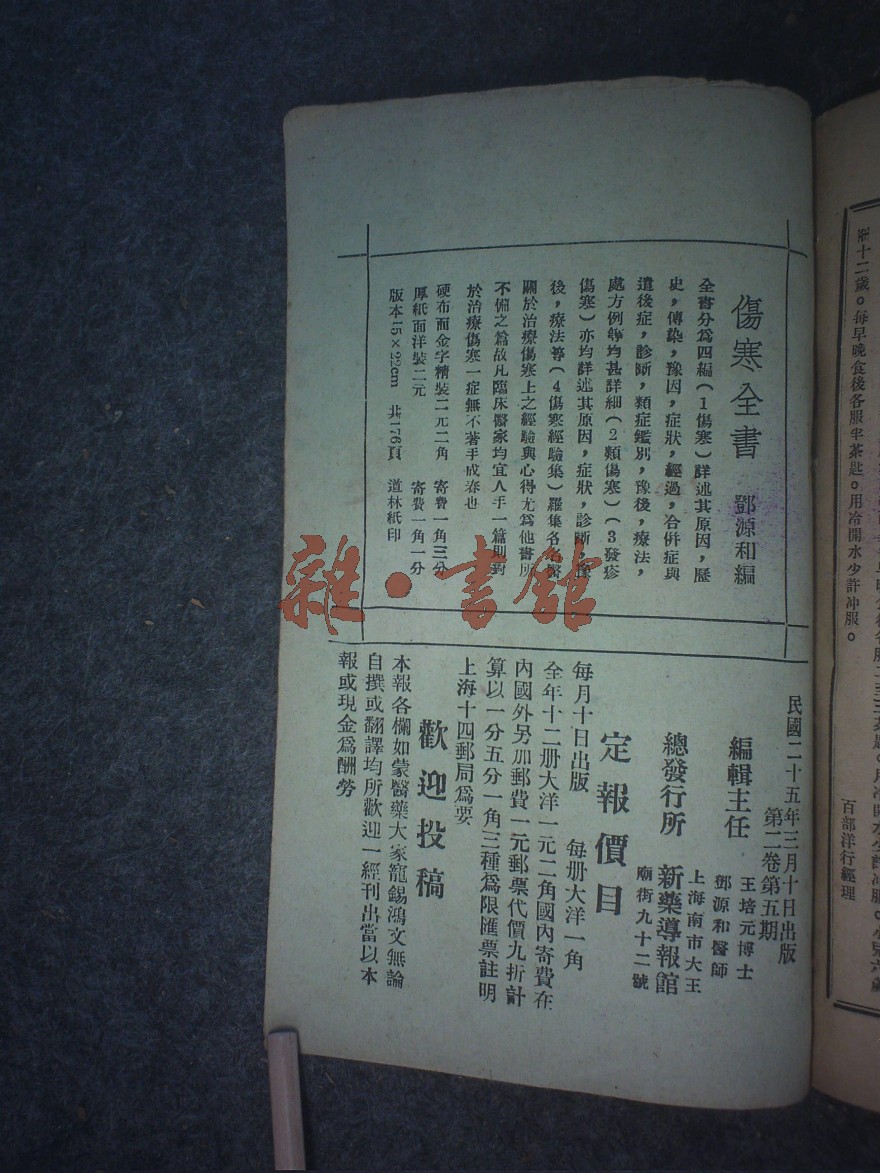 至十二歲。每早晚食後各服半茶匙。用冷開水少許冲服。
百部洋行經理
傷寒全書　鄧源和編
全書分爲四編（1傷寒）詳述其原因，歷
史，傳染，豫因，症狀，經過，合併症與
遺後症，診斷，類症鑑別，豫後，療法，
處方例等均甚詳細（2類傷寒）（3發疹
傷寒）亦均詳述其原因，症狀，診斷，豫
後，療法等（4傷寒經驗集）羅集各名醫
關於治療傷寒上之經驗與心得尤爲他書所
不備之篇故凡臨床醫家均宜人手一篇則對
於治療傷寒一症無不著手成春也
硬布面金字精裝二元二角　寄費一角三分
厚紙面洋裝二元　寄費一角一分
版本15×22cm　共176頁　道林紙印
民國二十五年三月十日出版
第二卷第五期
編輯主任　王培元博士
鄧源和醫師
總發行所　新藥導報館
上海南市大王
廟街九十二號
定報價目
每月十日出版　每册大洋一角
全年十二册大洋一元二角國內寄費在
內國外另加郵費一元郵票代價九折計
算以一分五分一角三種爲限匯票註明
上海十四郵局爲要
歡迎投稿
本報各欄如蒙醫藥大家寵錫鴻文無論
自撰或翻譯均所歡迎一經刊出當以本
報或現金爲酬勞
雜·書館